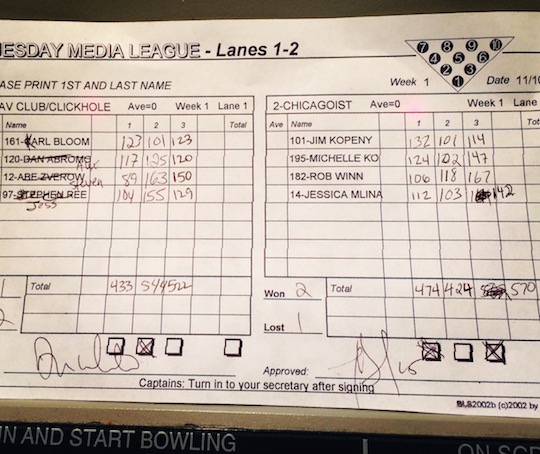 UESDAY MEDIA LEAGUE - Lanes 1-2
7 8 9 10
4 5 6
2 3
1
ASE PRINT 1ST AND LAST NAME
Week 1 Date 11/10
AV CLUB/CLICKHOLE Ave=0 Week 1 Lane 1
Name 1 2 3 Total
161-KARL BLOOM 123 101 123
120-DAN ABROMO Alex 117 125 120
12-ABE ZVEROW Steven 89 163 150
97-STEPHEN REE Jess 104 155 129
Total 433 544 522
1
2
2-CHICAGOIST Ave=0 Week 1 Lane
Ave Name 1 2 3 Tot
101-JIM KOPENY 132 101 114
195-MICHELLE KO 124 102 147
182-ROB WINN 106 118 167
14-JESSICA MLINA 112 103 142
Won 2 Total 474 424 570
Lost 1
Approved:
Captains: Turn in to your secretary after signing
BLS2002b (c)2002 by
IN AND START BOWLING
ON SCR